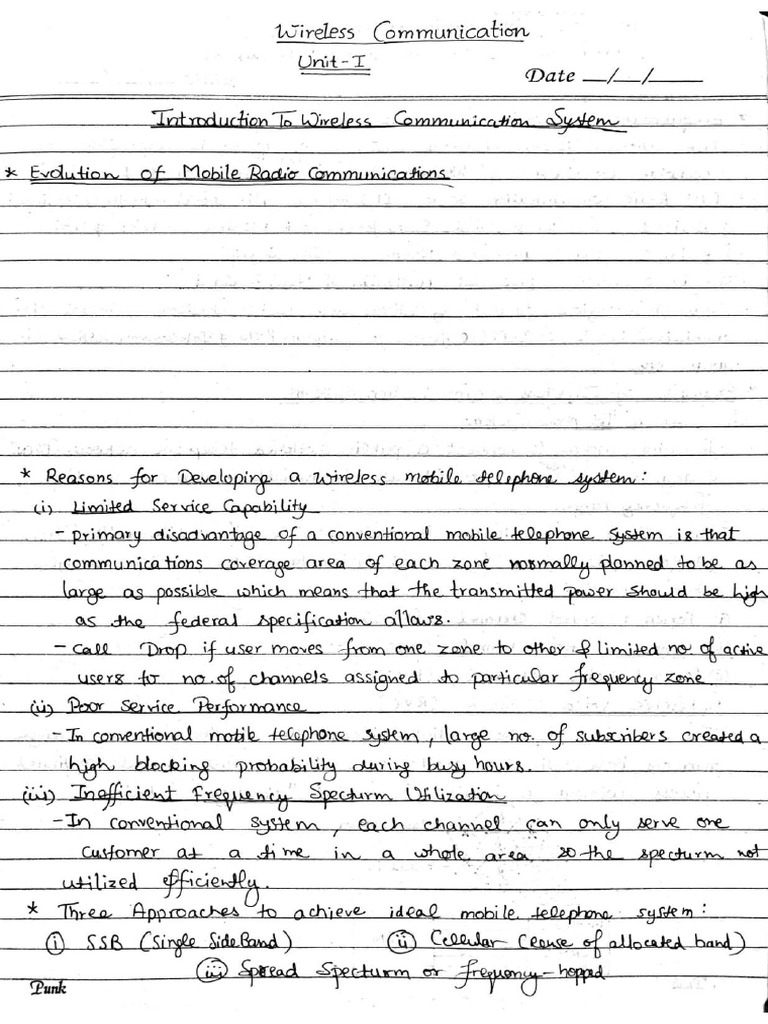 Wireless Communication
Unit-I
Date __/__/____
Introduction To Wireless Communication System
* Evolution of Mobile Radio Communications
* Reasons for Developing a wireless mobile telephone system:
(i) Limited Service Capability
- primary disadvantage of a conventional mobile telephone system is that
communications coverage area of each zone normally planned to be as
large as possible which means that the transmitted power should be high
as the federal specification allows.
- Call Drop if user moves from one zone to other & limited no. of active
users to no. of channels assigned to particular frequency zone
(ii) Poor Service Performance
- In conventional mobile telephone system, large no. of subscribers created a
high blocking probability during busy hours.
(iii) Inefficient Frequency Specturm Utilization
- In conventional system, each channel can only serve one
customer at a time in a whole area so the specturm not
utilized efficiently.
* Three Approaches to achieve ideal mobile telephone system:
(i) SSB (Single SideBand) (ii) Cellular (reuse of allocated band)
(iii) Spread Specturm or frequency-hopped
Punk